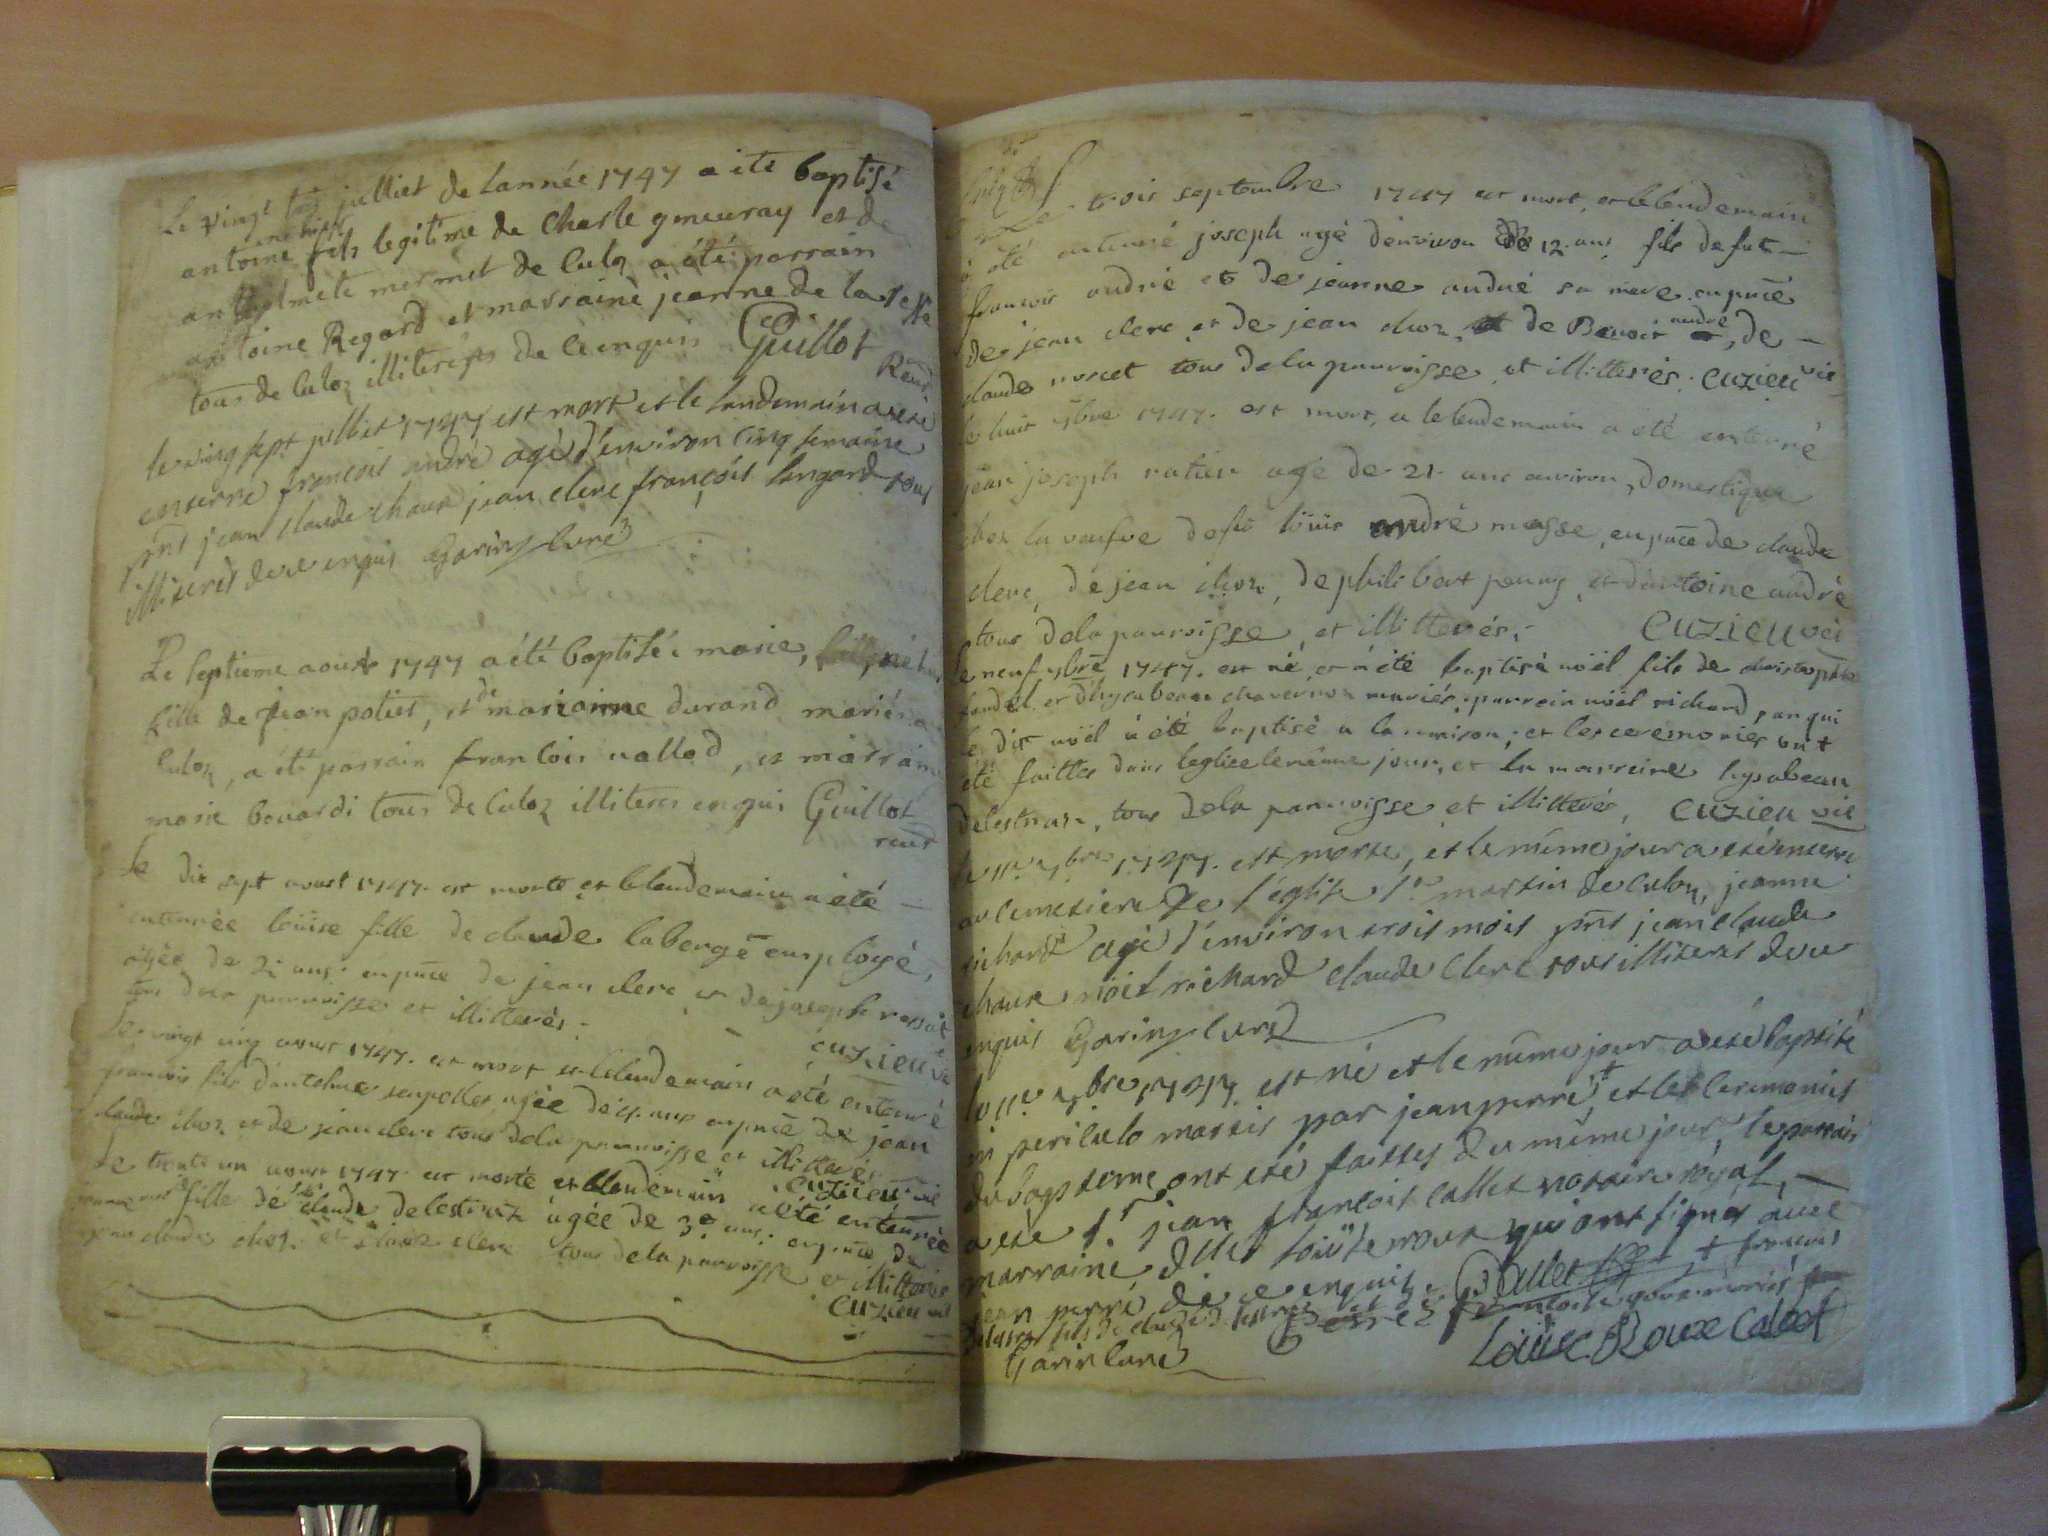 Le vingt juilliet de lannée 1747 a été baptisé
antoine fils legitime de Charle gmeuray et de
anthelmete mermet de culoz a été parrain
antoine Regard et marraine jeanne de la
tous de culoz illiterés de ce enquis Guillot
le ving sept juilliet 1747 est mort et le landemain a eté
enterré françois andré agé d'environ cinq semaine
pnt jean claude chaux jean clerc françois
illiterés de ce enquis Garin curé
Le septieme aoust 1747 a été baptisée marie,
fille de jean poliet, et de marianne durand mariés
culoz, a été parrain francois vallod, et marraine
marie bovardi tous de culoz illiteres enquis Guillot
le dix sept aoust 1747 est morte et le lendemain a été
enterrée loüise fille de claude laberge employé,
agée de 2 ans en pnce de jean clerc et de joseph
tous de la parroisse et illitterés.
Cuzieu
Le vingt cinq aoust 1747. est mort et le lendemain a été enterré
francois fils d'antelme agée de ans en pnce de jean
claude choz et de jean clerc tous de la parroisse et illitterés
Cuzieu vic
Le trente un aoust 1747 est morte et le lendemain a été enterrée
fille de claude delestraz agée de 3 ans. en pnce de
claude choz et clerc tous de la parroisse et illitterés
Cuzieu vic
Le trois septembre 1747 est mort, et le lendemain
a été enterré joseph agé denviron de 12 ans fils de fut
francois andrié et de jeanne andrié sa mere en pnce
de jean clerc et de jean choz de Benoit andre, de
claude tous de la parroisse et illitterés. Cuzieu vic
le huit 7bre 1747. est mort, et le lendemain a été enterré
jean joseph ratier agé de 21 ans environ, domestique
chez la veufve de fû loüis andré masse, en pnce de claude
clerc, de jean choz, de philibert et d'antoine andré
tous de la parroisse, et illitterés. Cuzieu vic
le neuf 7bre 1747. est né, et a été baptisé noël fils de christophle
et d'hysabeau chavernoz mariés, parrain noël richard, par qui
le dit noël a été baptisé a la maison, et les ceremonies ont
été faittes dans leglise le même jour, et la marreine hysabeau
delestraz, tous de la parroisse et illitterés, Cuzieu vic
le 11e 7bre 1747. est morte, et le même jour a eté enterré
au cimetiere de l'église St martin de culoz, jeanne
richard agé d'environ trois mois pnts jean claude
chaux noël richard claude clerc tous illiterés de ce
enquis Garin curé
le 11e 7bre 1747. est né et le même jour a eté baptisé
in periculo mortis par jean perré, + et les ceremonies
du bapteme ont eté faittes du même jour, le parrain
a eté Sr jean francois callet notaire royal,
marraine, dlle loüise roux qui ont signés avec
jean perré de ce enquis. Ballet + francois
fils de claude perré
Garin curé Loüise Roux Calet